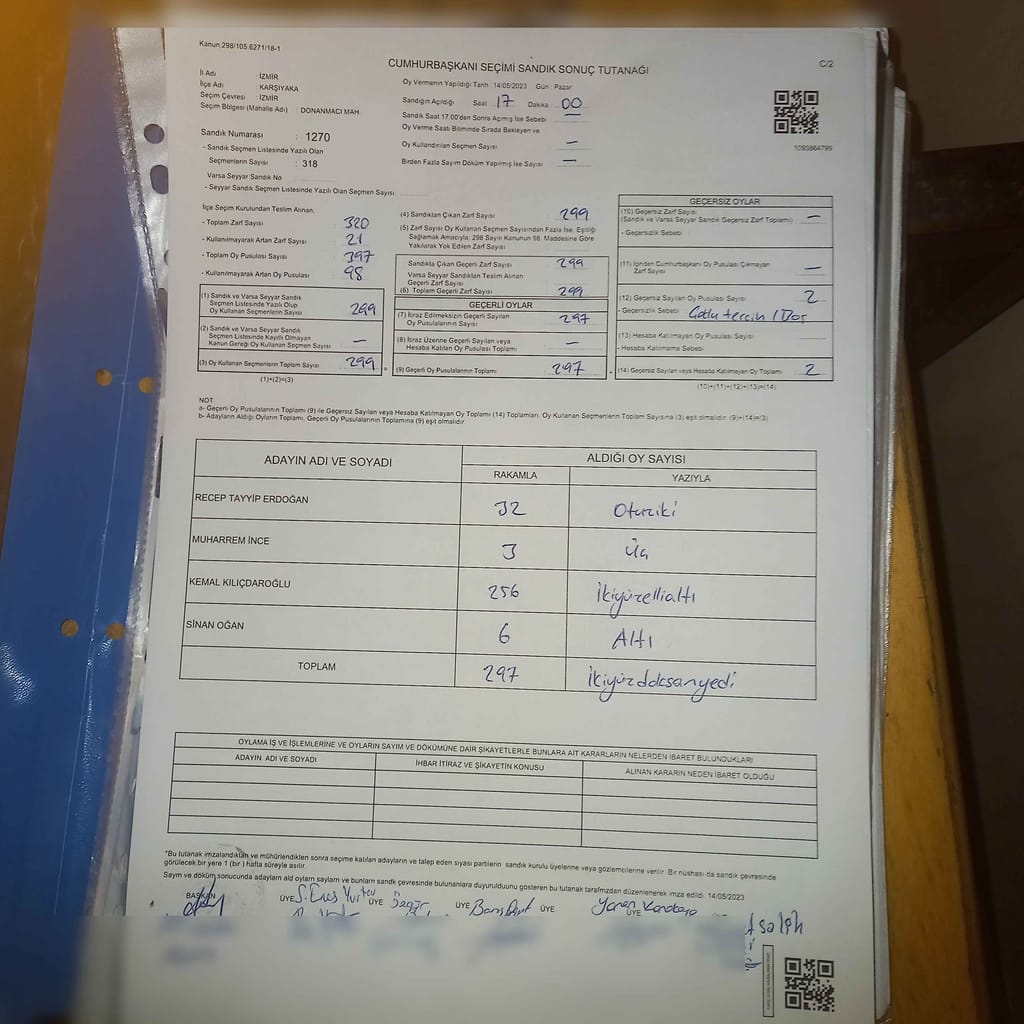 Kanun:298/105.6271/18-1
CUMHURBAŞKANI SEÇİMİ SANDIK SONUÇ TUTANAĞI
C/2
İl Adı : İZMİR
İlçe Adı : KARŞIYAKA
Seçim Çevresi : İZMİR
Seçim Bölgesi (Mahalle Adı) : DONANMACI MAH.
Sandık Numarası : 1270
- Sandık Seçmen Listesinde Yazılı Olan
Seçmenlerin Sayısı : 318
Varsa Seyyar Sandık No
- Seyyar Sandık Seçmen Listesinde Yazılı Olan Seçmen Sayısı
Oy Vermenin Yapıldığı Tarih : 14/05/2023 Gün : Pazar
Sandığın Açıldığı Saat 17 Dakika 00
Sandık Saat 17.00'den Sonra Açılmış İse Sebebi
Oy Verme Saati Bitiminde Sırada Bekleyen ve
Oy Kullandırılan Seçmen Sayısı : —
Birden Fazla Sayım Döküm Yapılmış İse Sayısı : —
1093864799
İlçe Seçim Kurulundan Teslim Alınan;
- Toplam Zarf Sayısı : 320
- Kullanılmayarak Artan Zarf Sayısı : 21
- Toplam Oy Pusulası Sayısı : 397
- Kullanılmayarak Artan Oy Pusulası : 98
(1) Sandık ve Varsa Seyyar Sandık
Seçmen Listesinde Yazılı Olup
Oy Kullanan Seçmenlerin Sayısı : 299
(2) Sandık ve Varsa Seyyar Sandık
Seçmen Listesinde Kayıtlı Olmayan
Kanun Gereği Oy Kullanan Seçmen Sayısı : —
(3) Oy Kullanan Seçmenlerin Toplam Sayısı : 299
(1)+(2)=(3)
(4) Sandıktan Çıkan Zarf Sayısı : 299
(5) Zarf Sayısı Oy Kullanan Seçmen Sayısından Fazla İse, Eşitliği
Sağlamak Amacıyla; 298 Sayılı Kanunun 98. Maddesine Göre
Yakılarak Yok Edilen Zarf Sayısı
Sandıkta Çıkan Geçerli Zarf Sayısı : 299
Varsa Seyyar Sandıktan Teslim Alınan
Geçerli Zarf Sayısı
(6) Toplam Geçerli Zarf Sayısı : 299
GEÇERLİ OYLAR
(7) İtiraz Edilmeksizin Geçerli Sayılan
Oy Pusulalarının Sayısı : 297
(8) İtiraz Üzerine Geçerli Sayılan veya
Hesaba Katılan Oy Pusulası Toplamı : —
(9) Geçerli Oy Pusulalarının Toplamı : 297
GEÇERSİZ OYLAR
(10) Geçersiz Zarf Sayısı
(Sandık ve Varsa Seyyar Sandık Geçersiz Zarf Toplamı) : —
- Geçersizlik Sebebi
(11) İçinden Cumhurbaşkanı Oy Pusulası Çıkmayan
Zarf Sayısı : —
(12) Geçersiz Sayılan Oy Pusulası Sayısı : 2
- Geçersizlik Sebebi
(13) Hesaba Katılmayan Oy Pusulası Sayısı
- Hesaba Katılmama Sebebi
(14) Geçersiz Sayılan veya Hesaba Katılmayan Oy Toplamı : 2
(10)+(11)+(12)+(13)=(14)
NOT:
a- Geçerli Oy Pusulalarının Toplamı (9) ile Geçersiz Sayılan veya Hesaba Katılmayan Oy Toplamı (14) Toplamları, Oy Kullanan Seçmenlerin Toplam Sayısına (3) eşit olmalıdır. (9)+(14)=(3)
b- Adayların Aldığı Oyların Toplamı, Geçerli Oy Pusulalarının Toplamına (9) eşit olmalıdır.
ADAYIN ADI VE SOYADI ALDIĞI OY SAYISI
RAKAMLA YAZIYLA
RECEP TAYYİP ERDOĞAN 32 Otuziki
MUHARREM İNCE 3 Üç
KEMAL KILIÇDAROĞLU 256 İkiyüzellialtı
SİNAN OĞAN 6 Altı
TOPLAM 297 İkiyüzdoksanyedi
OYLAMA İŞ VE İŞLEMLERİNE VE OYLARIN SAYIM VE DÖKÜMÜNE DAİR ŞİKAYETLERLE BUNLARA AİT KARARLARIN NELERDEN İBARET BULUNDUKLARI
ADAYIN ADI VE SOYADI İHBAR İTİRAZ VE ŞİKAYETİN KONUSU ALINAN KARARIN NEDEN İBARET OLDUĞU
*Bu tutanak imzalandıktan ve mühürlendikten sonra seçime katılan adayların ve talep eden siyasi partilerin sandık kurulu üyelerine veya gözlemcilerine verilir. Bir nüshası da sandık çevresinde
görülecek bir yere 1 (bir ) hafta süreyle asılır.
Sayım ve döküm sonucunda adayların aldığı oyların sayıları ve bunların sandık çevresinde bulunanlara duyurulduğunu gösteren bu tutanak tarafımızdan düzenlenerek imza edildi. 14/05/2023
BAŞKAN ÜYE ÜYE ÜYE ÜYE ÜYE